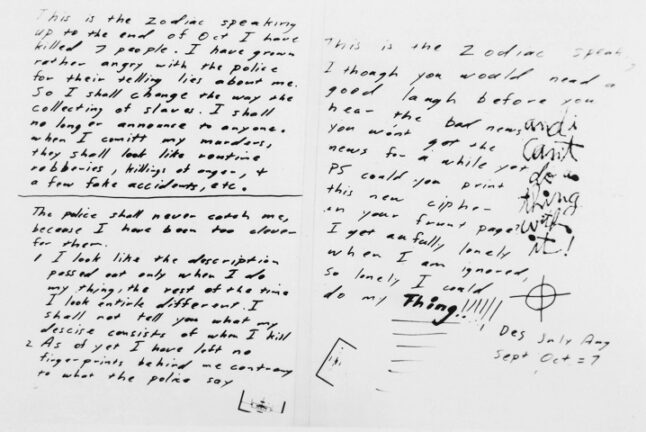 This is the Zodiac speaking
up to the end of Oct I have
killed 7 people. I have grown
rather angry with the police
for their telling lies about me.
So I shall change the way the
collecting of slaves. I shall
no longer announce to anyone.
when I comitt my murders,
they shall look like routine
robberies, killings of anger, +
a few fake accidents, etc.
The police shall never catch me,
because I have been too clever
for them.
1 I look like the description
passed out only when I do
my thing, the rest of the time
I look entirle different. I
shall not tell you what my
descise consists of when I kill
2 As of yet I have left no
fingerprints behind me contrary
to what the police say
This is the Zodiac speak
I though you would need a
good laugh before you
hear the bad news
you wont get the
news for a while yet
PS could you print
this new cipher
in your frunt page?
I get aufully lonely
when I am ignored,
so lonely I could
do my Thing!!!!!!
and i
can't
do a
thing
with
it!
Des July Aug
Sept Oct = 7